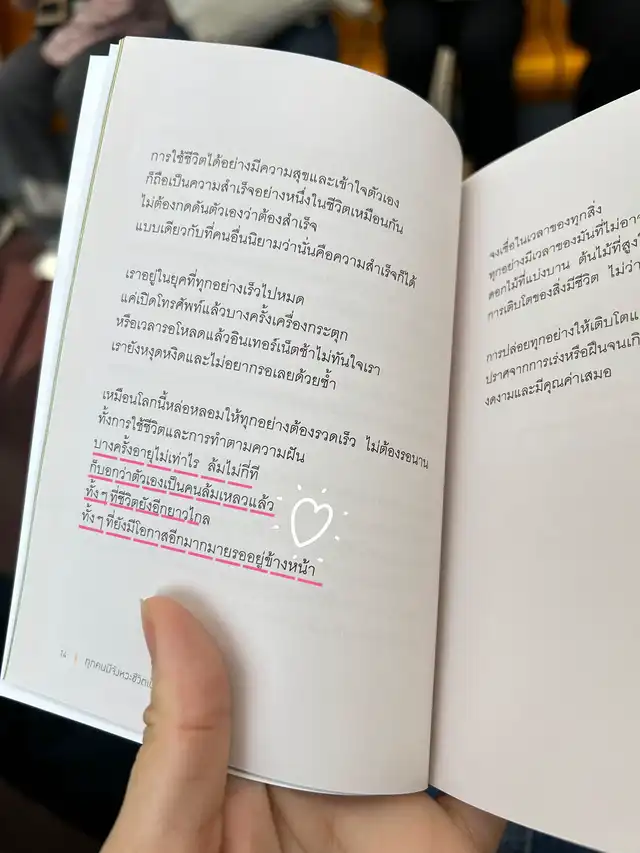 การใช้ชีวิตได้อย่างมีความสุขและเข้าใจตัวเอง
ก็ถือเป็นความสำเร็จอย่างหนึ่งในชีวิตเหมือนกัน
ไม่ต้องกดดันตัวเองว่าต้องสำเร็จ
แบบเดียวกับที่คนอื่นนิยามว่านั่นคือความสำเร็จก็ได้
เราอยู่ในยุคที่ทุกอย่างเร็วไปหมด
แค่เปิดโทรศัพท์แล้วบางครั้งเครื่องกระตุก
หรือเวลารอโหลดแล้วอินเทอร์เน็ตช้าไม่ทันใจเรา
เรายังหงุดหงิดและไม่อยากรอเลยด้วยซ้ำ
เหมือนโลกนี้หล่อหลอมให้ทุกอย่างต้องรวดเร็ว ไม่ต้องรอนาน
ทั้งการใช้ชีวิตและการทำตามความฝัน
บางครั้งอายุไม่เท่าไร ล้มไม่กี่ที
ก็บอกว่าตัวเองเป็นคนล้มเหลวแล้ว
ทั้งๆ ที่ชีวิตยังอีกยาวไกล
ทั้งๆ ที่ยังมีโอกาสอีกมากมายรออยู่ข้างหน้า
ทุกคนมีจังหวะชีวิต
จงเชื่อในเวลาของทุกสิ่ง
ทุกอย่างมีเวลาของมันที่ไม่อาจ
ดอกไม้ที่แบ่งบาน ต้นไม้ที่สูง
การเติบโตของสิ่งมีชีวิต ไม่ว่า
การปล่อยทุกอย่างให้เติบโต
ปราศจากการเร่งหรือฝืนจน
งดงามและมีคุณค่าเสมอ